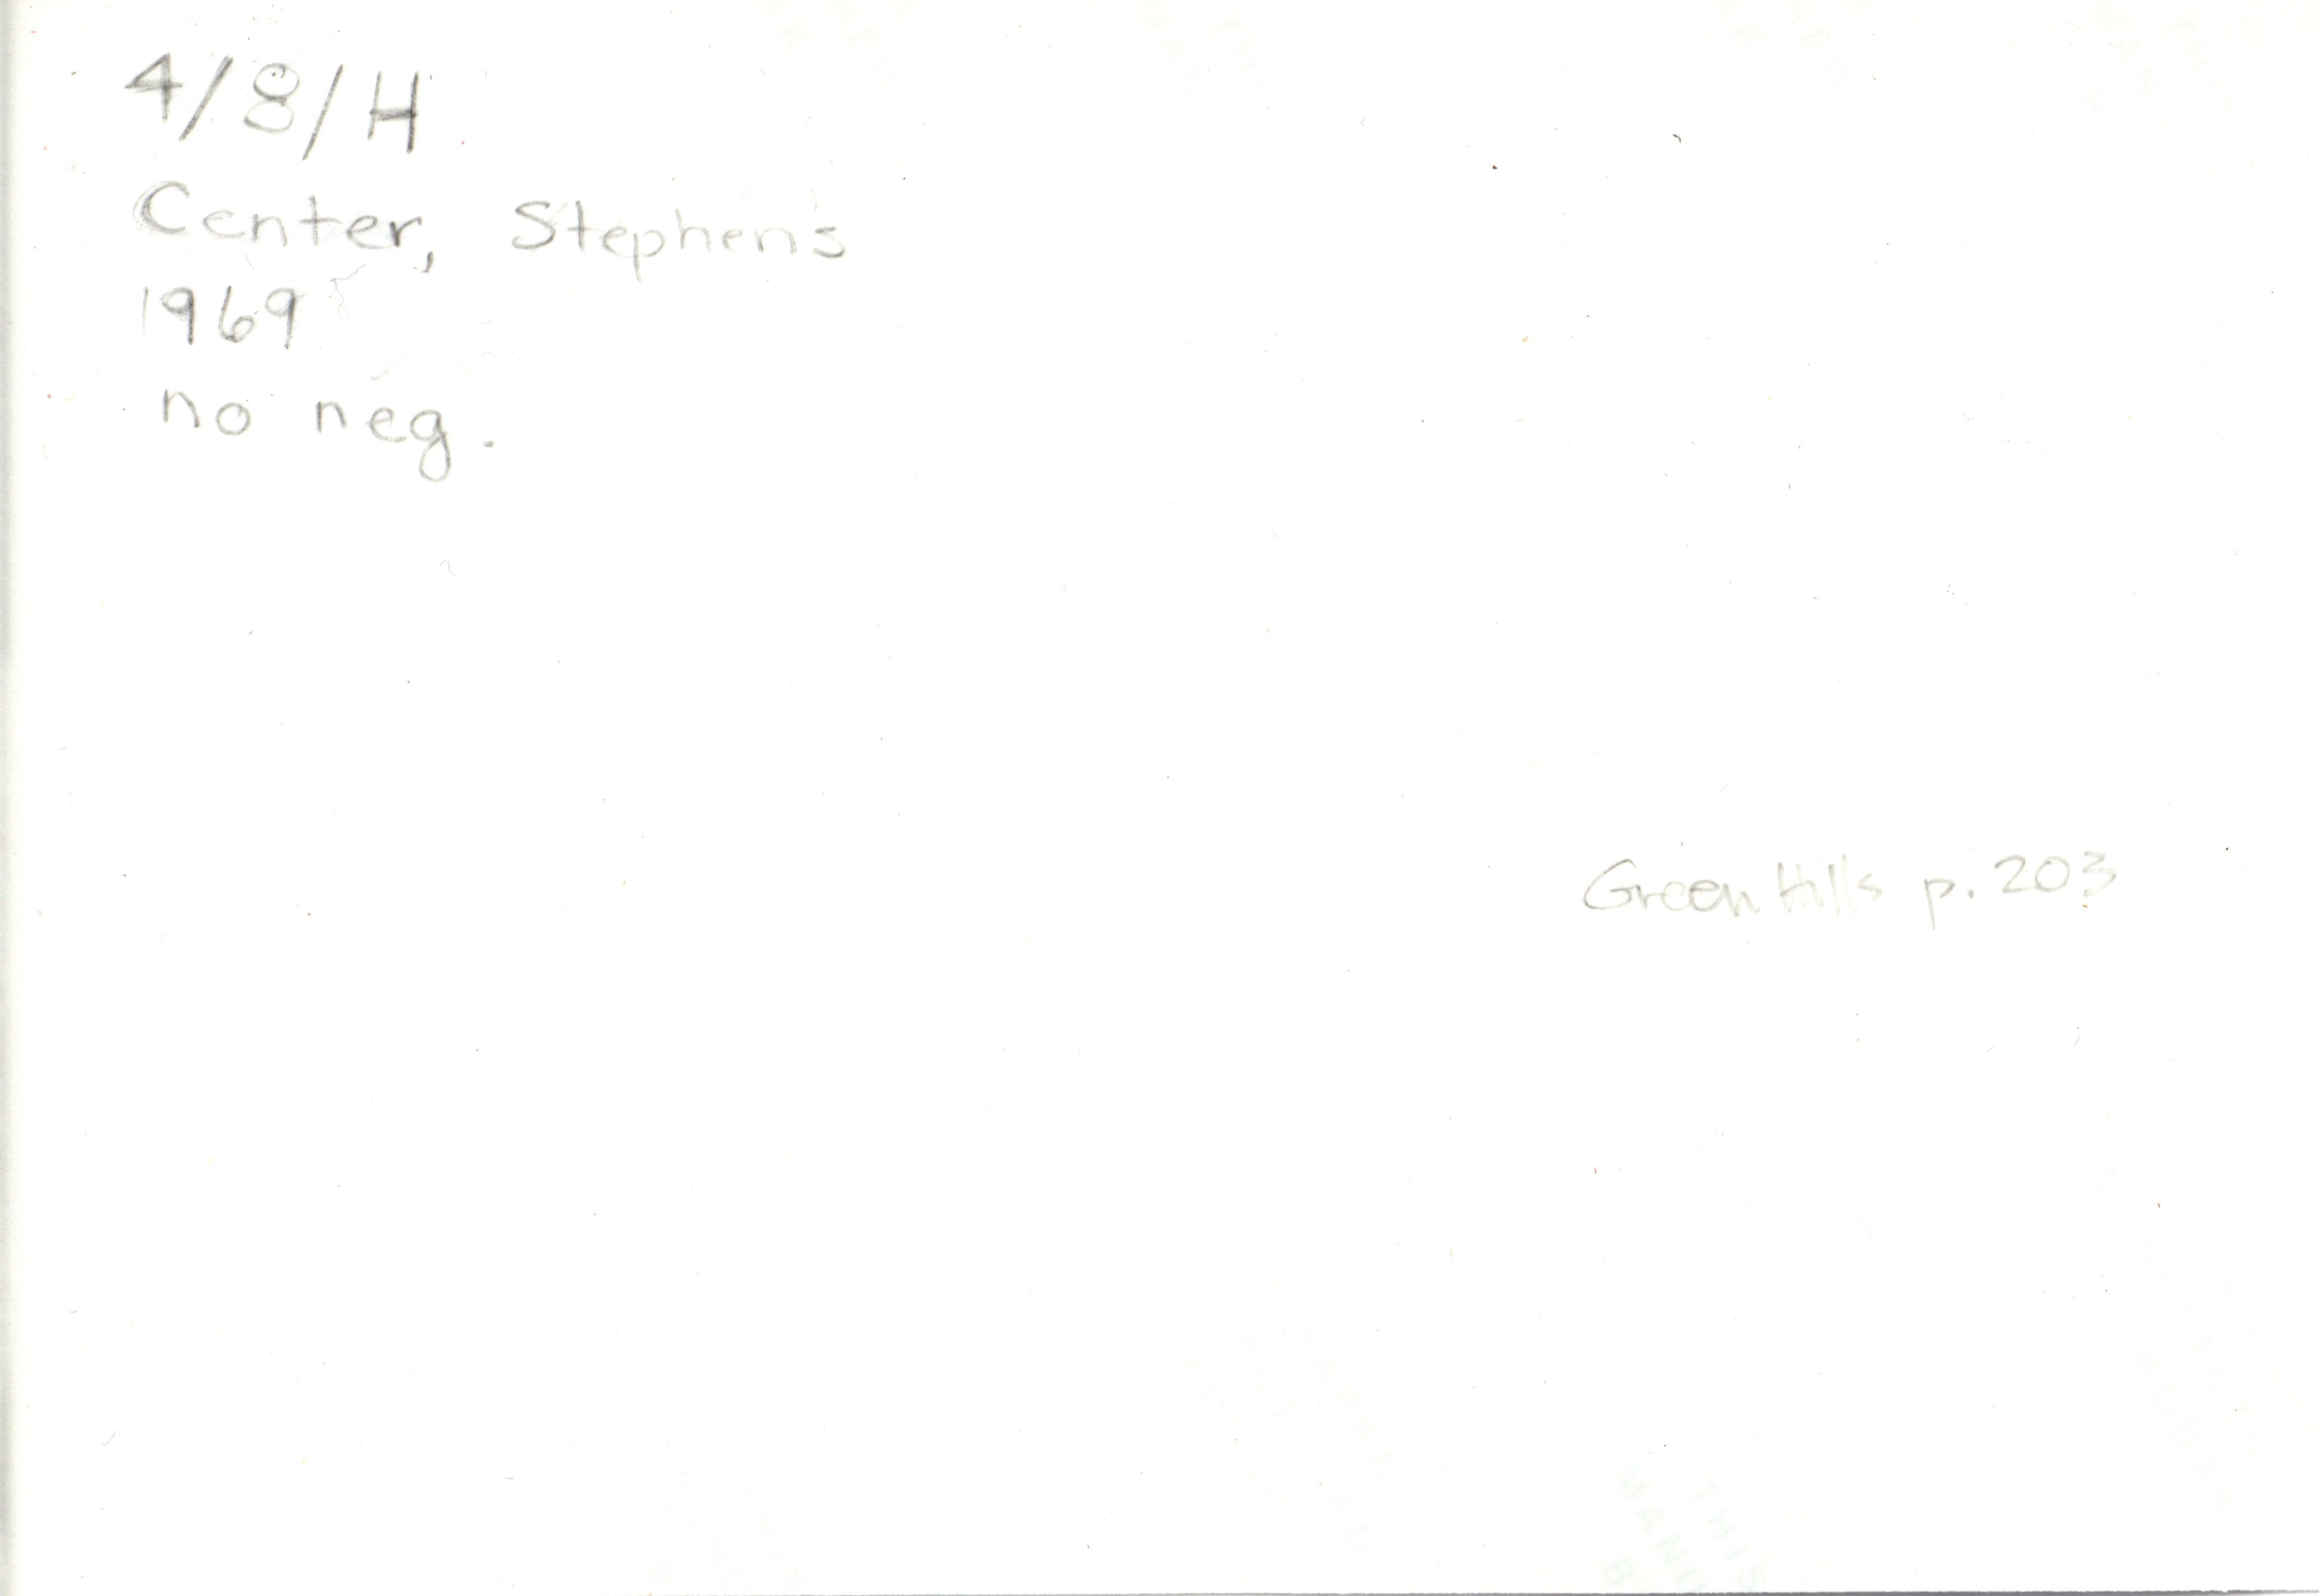 4/8/H
Center, Stephens
1969
no neg.
Green Hills p. 203